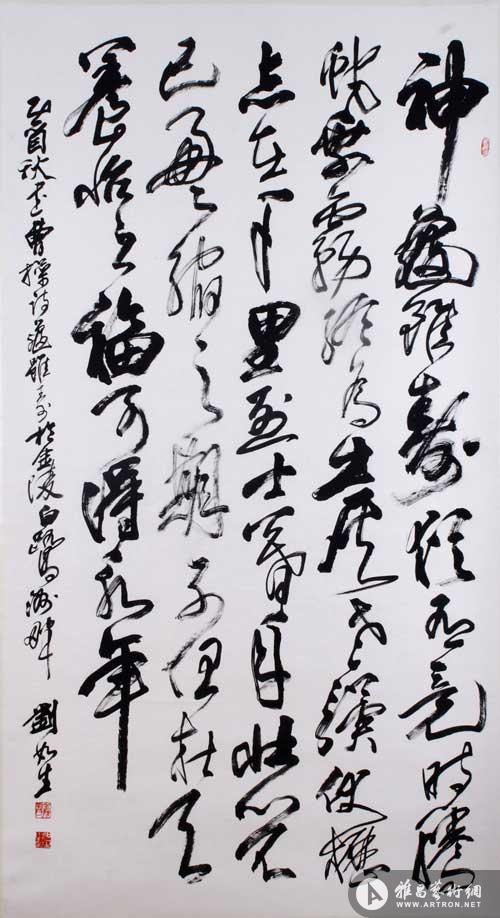 神龜雖壽猶有竟時騰
蛇乘霧終為土灰老驥伏櫪
志在千里烈士暮年壯心不
已盈縮之期不但在天
養怡之福可得永年
乙酉秋書曹操詩龜雖壽於金陵白鷺洲畔 劉如生
雅昌藝術網
WWW.ARTRON.NET